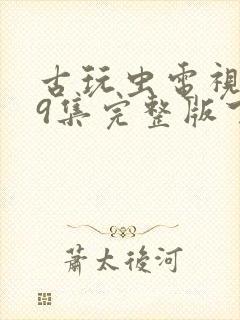 古玩虫電視
9集完整版
蕭太後河